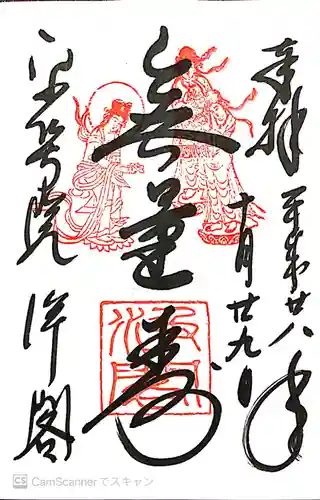 奉拝 平成廿八年
十月廿九日
無量寿
平等院 洋閣
CS CamScannerでスキャン